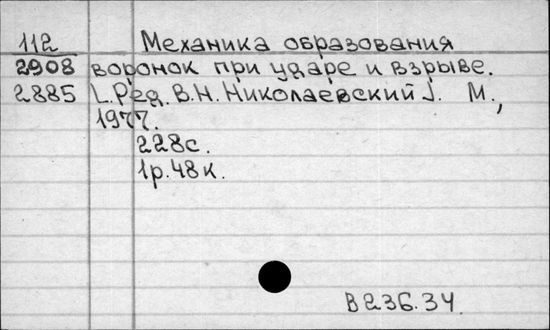 112 Механика образования
2908 воронок при ударе и взрыве.
2885 [Ред. В.Н. Николаевский]. М.,
1977.
228с.
1р.48к.
В236.34.